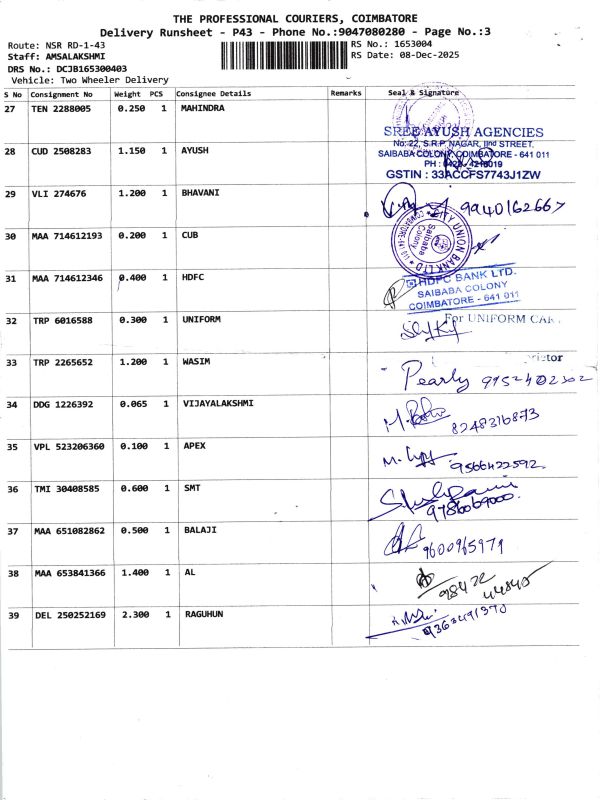 THE PROFESSIONAL COURIERS, COIMBATORE
Delivery Runsheet - P43 - Phone No.:9047080280 - Page No.:3
Route: NSR RD-1-43
RS No.: 1653004
Staff: AMSALAKSHMI
RS Date: 08-Dec-2025
DRS No.: DCJB165300403
Vehicle: Two Wheeler Delivery
S No Consignment No Weight PCS Consignee Details Remarks Seal & Signature
27 TEN 2288005 0.250 1 MAHINDRA
SREE AYUSH AGENCIES
No: 22, S.R.P. NAGAR, IInd STREET,
28 CUD 2508283 1.150 1 AYUSH
SAIBABA COLONY, COIMBATORE - 641 011
PH : 0422 - 4216019
GSTIN : 33ACCFS7743J1ZW
29 VLI 274676 1.200 1 BHAVANI
9940162667
30 MAA 714612193 0.200 1 CUB
CITY UNION BANK LTD
Saibaba Colony
31 MAA 714612346 0.400 1 HDFC
HDFC BANK LTD.
SAIBABA COLONY
COIMBATORE - 641 011
32 TRP 6016588 0.300 1 UNIFORM
For UNIFORM
33 TRP 2265652 1.200 1 WASIM
Pearly
34 DDG 1226392 0.065 1 VIJAYALAKSHMI
8248316873
35 VPL 523206360 0.100 1 APEX
9566422592
36 TMI 30408585 0.600 1 SMT
9786069000
37 MAA 651082862 0.500 1 BALAJI
9600965979
38 MAA 653841366 1.400 1 AL
98422
44845
39 DEL 250252169 2.300 1 RAGUHUN
9363491370